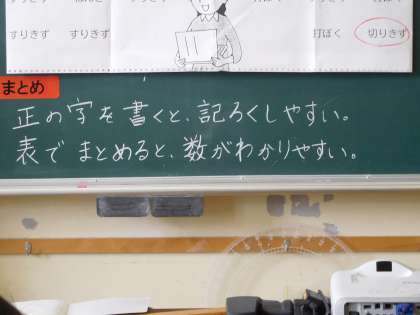 すりきず すりきず 打ぼく 切りきず
まとめ
正の字を書くと、記ろくしやすい。
表でまとめると、数がわかりやすい。